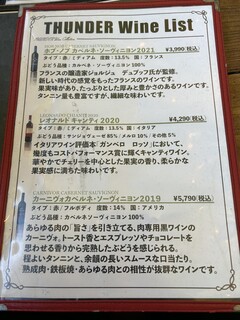 THUNDER Wine List
ホブ・ノブ カベルネ・ソーヴィニヨン2021 ¥3,990(税込)
タイプ:赤/ミディアム 度数:13.5% 国:フランス
ぶどう品種:カベルネ・ソーヴィニヨン 100%
フランスの醸造家ジョルジュ デュブッフ氏が監修。
新しい時代の感覚をもったフランスのワインです。
果実味があり、たっぷりとした厚みと豊かさのあるワインです。
タンニン量も豊富ですが、繊細な味わいです。
LEONARDO CHIANTI 2020
レオナルド キャンティ2020 ¥4,290(税込)
タイプ:赤/ミディアム 度数:13.5% 国:イタリア
ぶどう品種:サンジョヴェーゼ 85%/メルロ 10%/その他 5%
イタリアワイン評価本「ガンベロ ロッソ」において、
幾度もコストパフォーマンス賞に輝くキャンティワイン。
華やかでチェリーを中心とした果実の香り、柔らかな
果実感に満ちた味わいです。
CARNIVOR CABERNET SAUVIGNON
カーニヴォカベルネ・ソーヴィニヨン2019 ¥5,790(税込)
タイプ:赤/フルボディ 度数:14% 国:アメリカ
ぶどう品種:カベルネソーヴィニヨン 100%
あらゆる肉の「旨さ」を引き立てる、肉専用黒ワインの
カーニヴォ。トースト香とエスプレッソやチョコレートを
思わせる香りから完熟したぶどうを感じられる。
程よいタンニンと、余韻の長いスムースな口当たり。
熟成肉・鉄板焼・あらゆる肉との相性が抜群なワインです。